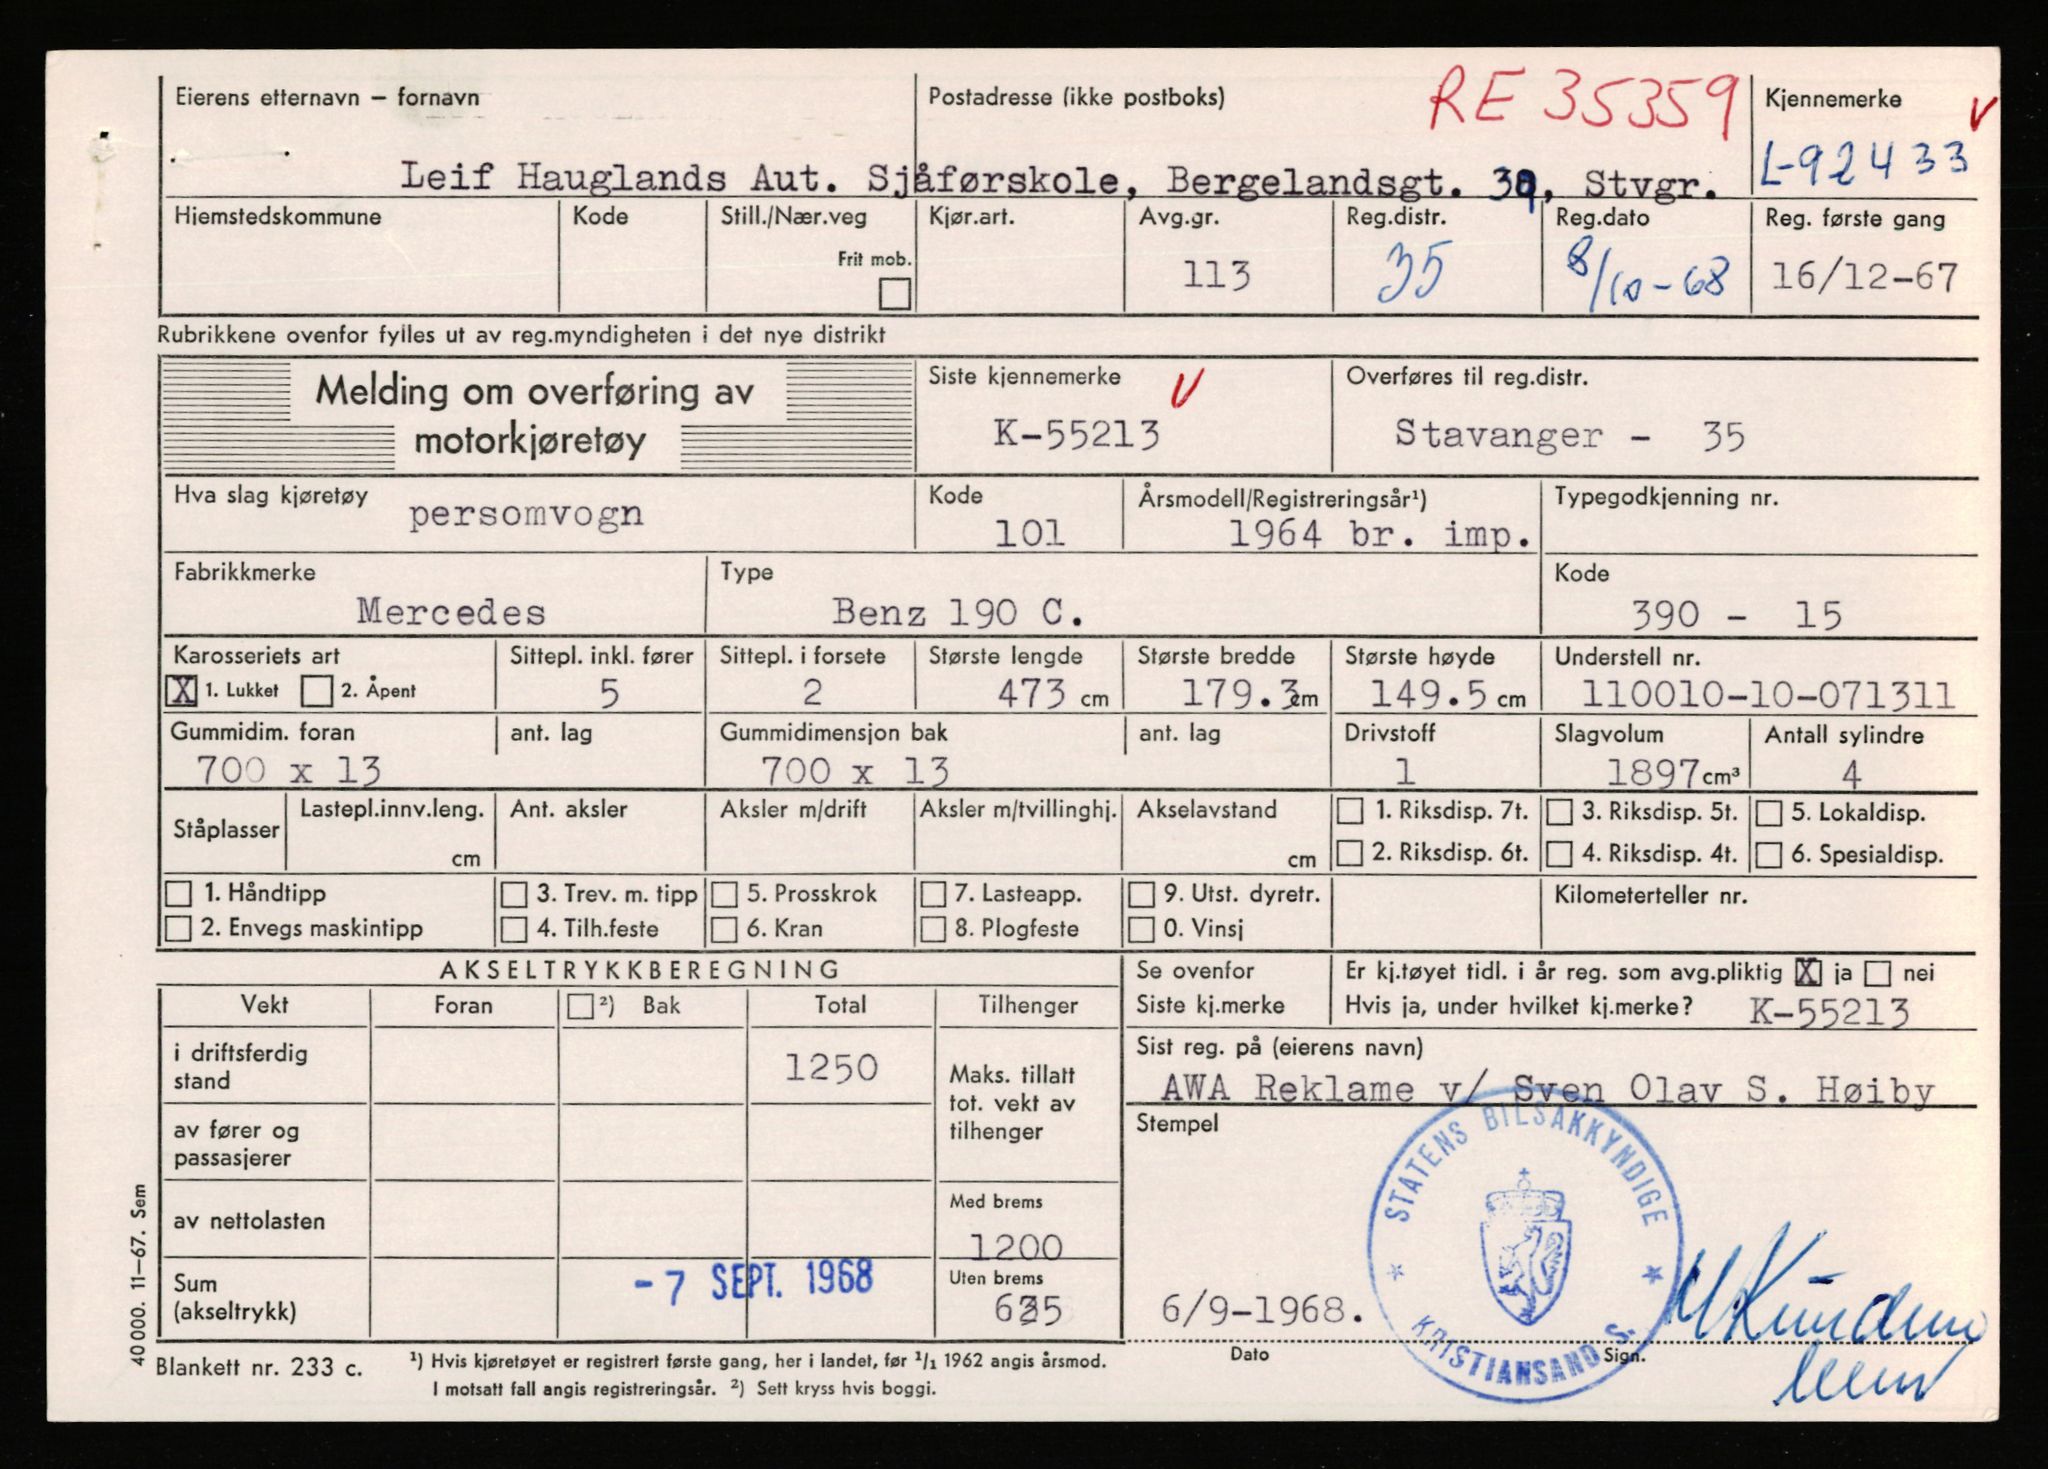 Eierens etternavn – fornavn
Postadresse (ikke postboks)
RE 35359
Kjennemerke V
Leif Hauglands Aut. Sjåførskole, Bergelandsgt. 39, Stvgr.
L-92433
Hjemstedskommune
Kode
Still./Nær.veg
Frit mob.
Kjør.art.
Avg.gr.
113
Reg.distr.
35
Reg.dato
8/10-68
Reg. første gang
16/12-67
Rubrikkene ovenfor fylles ut av reg.myndigheten i det nye distrikt
Melding om overføring av
motorkjøretøy
Siste kjennemerke V
K-55213
Overføres til reg.distr.
Stavanger - 35
Hva slag kjøretøy
persomvogn
Kode
101
Årsmodell/Registreringsår¹)
1964 br. imp.
Typegodkjenning nr.
Fabrikkmerke
Mercedes
Type
Benz 190 C.
Kode
390 - 15
Karosseriets art
X 1. Lukket 2. Åpent
Sittepl. inkl. fører
5
Sittepl. i forsete
2
Største lengde
473 cm
Største bredde
179.3 cm
Største høyde
149.5 cm
Understell nr.
110010-10-071311
Gummidim. foran
700 x 13
ant. lag
Gummidimensjon bak
700 x 13
ant. lag
Drivstoff
1
Slagvolum
1897 cm³
Antall sylindre
4
Ståplasser
Lastepl.innv.leng.
cm
Ant. aksler
Aksler m/drift
Aksler m/tvillinghj.
Akselavstand
cm
1. Riksdisp. 7t. 3. Riksdisp. 5t. 5. Lokaldisp.
2. Riksdisp. 6t. 4. Riksdisp. 4t. 6. Spesialdisp.
1. Håndtipp 3. Trev. m. tipp 5. Prosskrok 7. Lasteapp. 9. Utst. dyretr.
2. Envegs maskintipp 4. Tilh.feste 6. Kran 8. Plogfeste 0. Vinsj
Kilometerteller nr.
AKSELTRYKKBEREGNING
Vekt Foran ²) Bak Total Tilhenger
i driftsferdig
stand
1250
Maks. tillatt
tot. vekt av
tilhenger
av fører og
passasjerer
av nettolasten
Med brems
1200
Sum
(akseltrykk)
- 7 SEPT. 1968
Uten brems
625
Se ovenfor
Siste kj.merke
Er kj.tøyet tidl. i år reg. som avg.pliktig X ja nei
Hvis ja, under hvilket kj.merke? K-55213
Sist reg. på (eierens navn)
AWA Reklame v/ Sven Olav S. Høiby
Stempel
STATENS BILSAKKYNDIGE
KRISTIANSAND S
6/9-1968.
Dato
Sign.
40 000. 11–67. Sem
Blankett nr. 233 c.
¹) Hvis kjøretøyet er registrert første gang, her i landet, før 1/1 1962 angis årsmod.
I motsatt fall angis registreringsår. ²) Sett kryss hvis boggi.